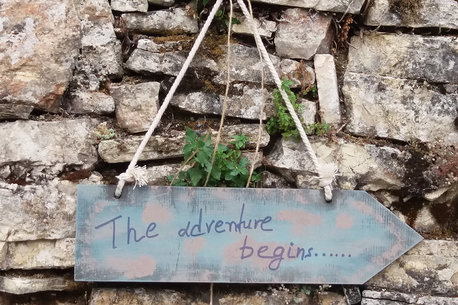 The adventure
begins......